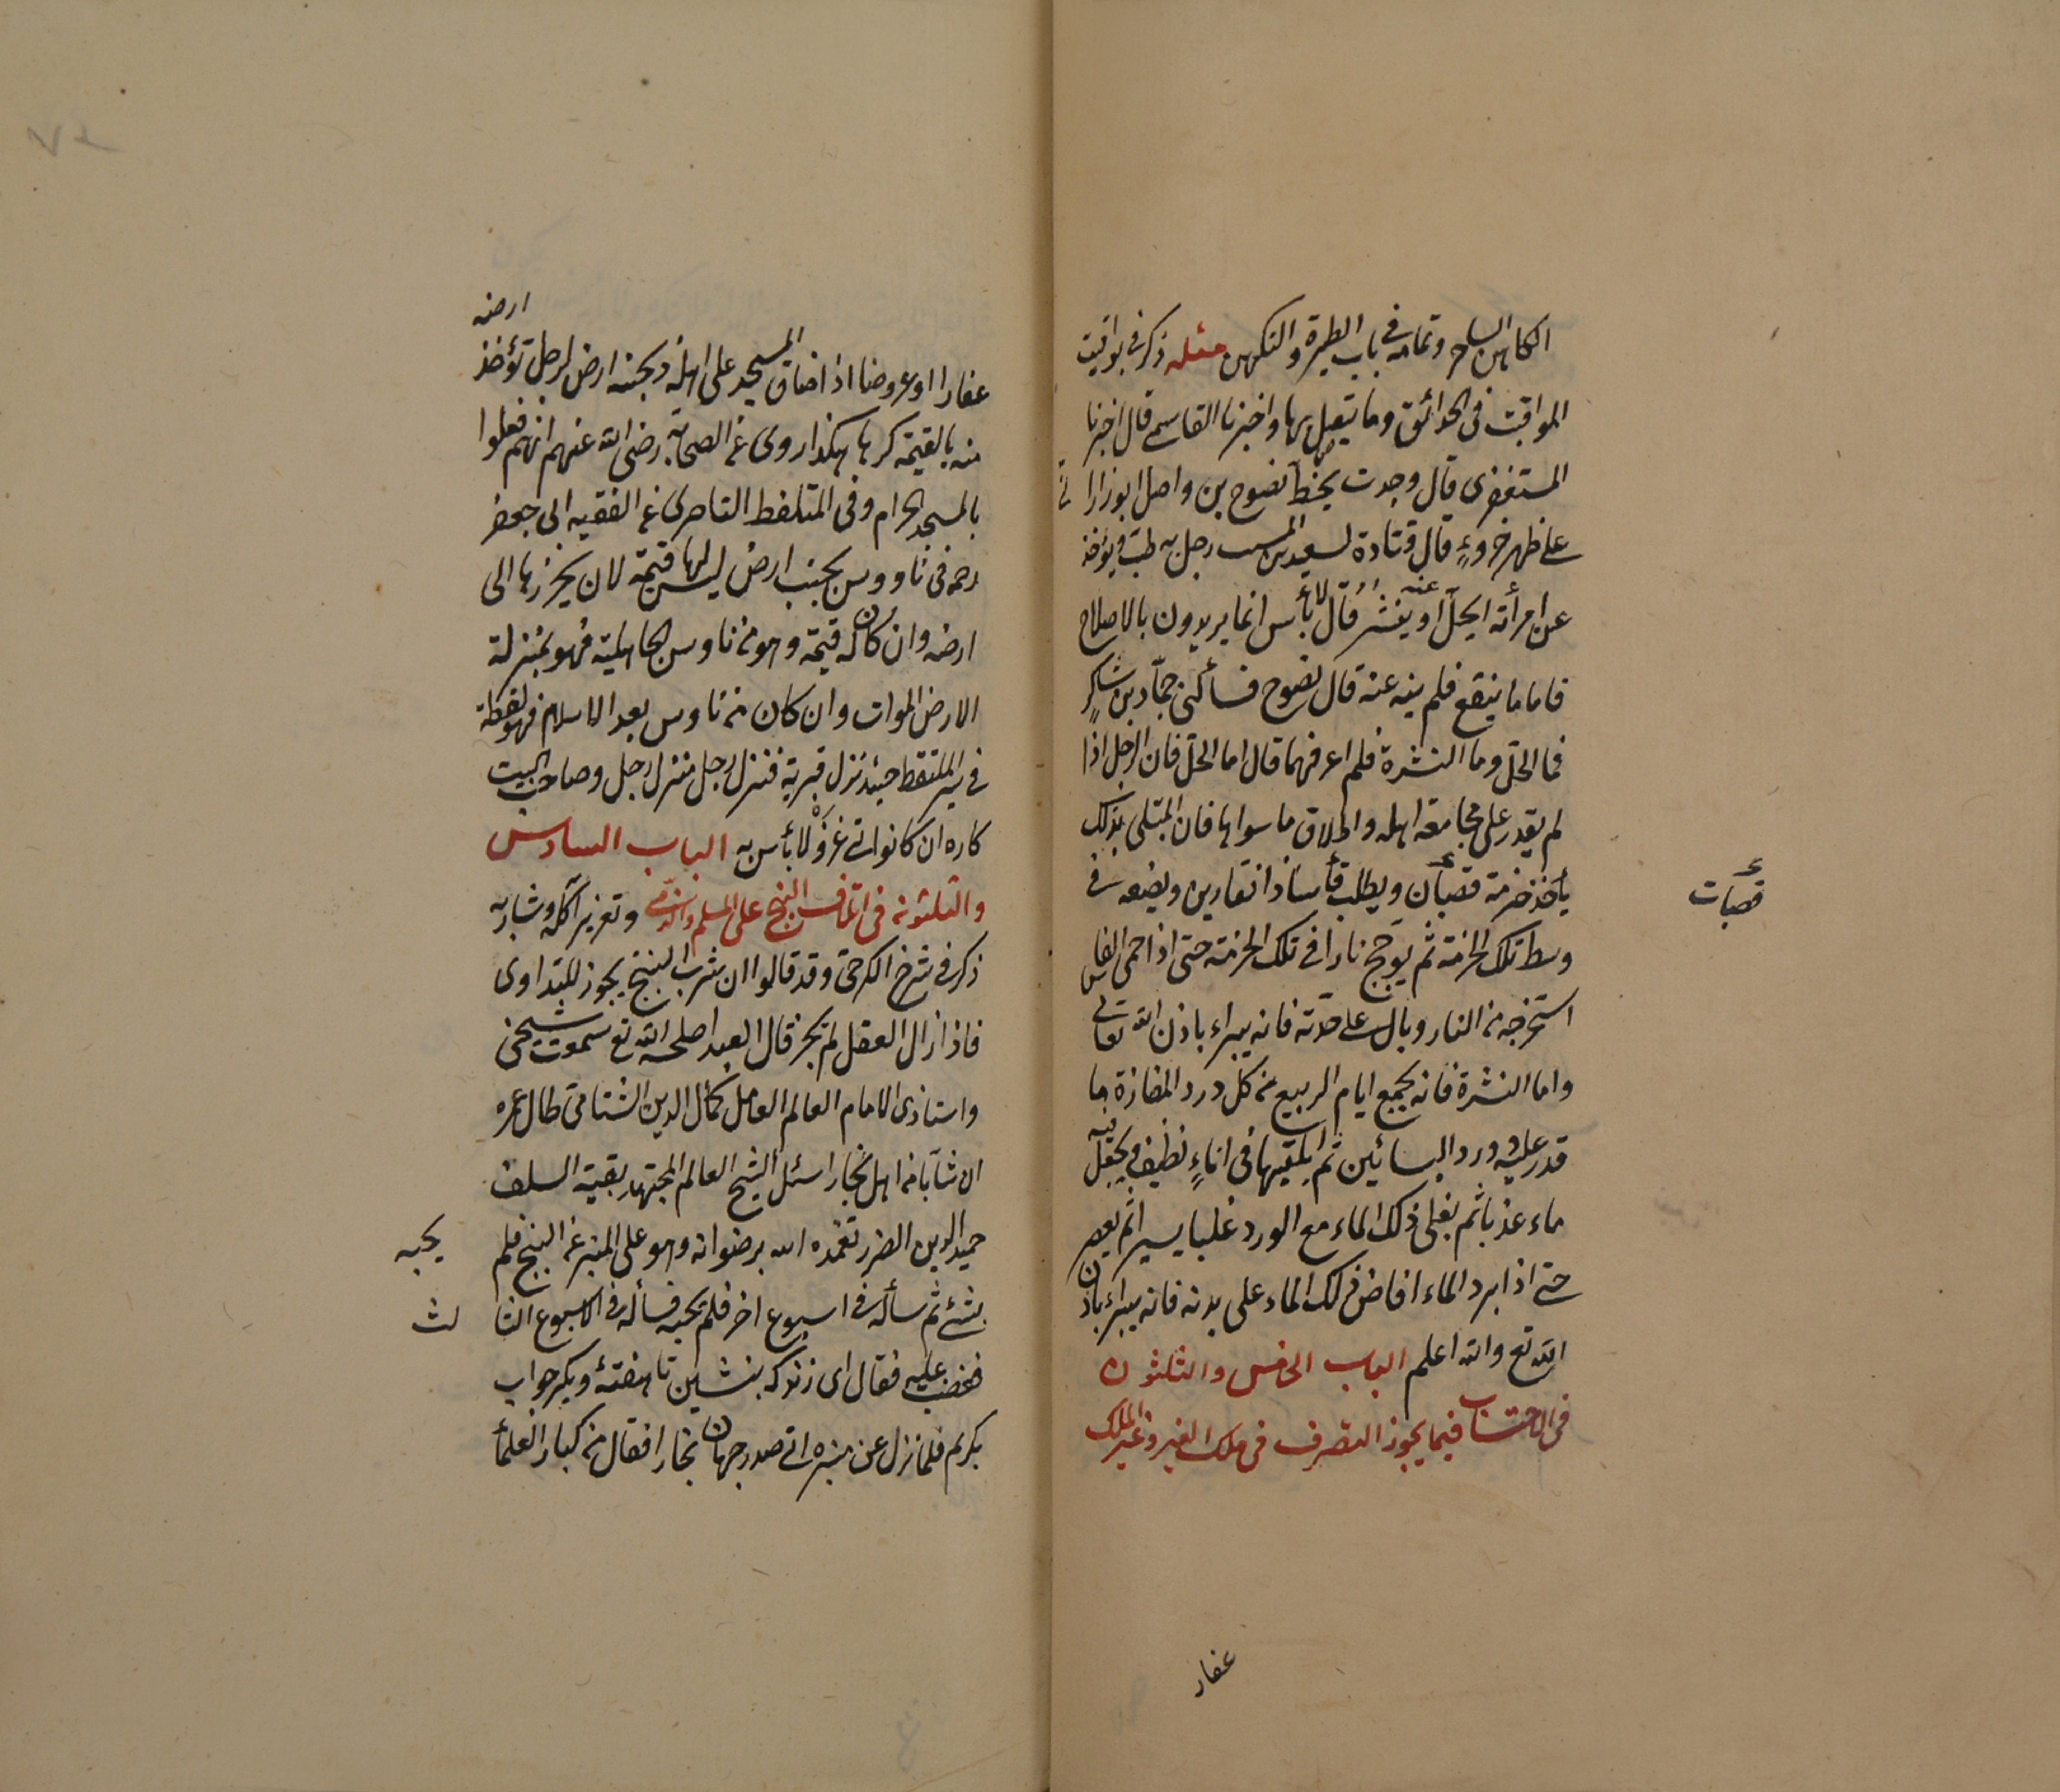 الكاهن الساحر وتمامه في باب الطيرة والتكهن مسئله ذكر في يواقيت
المواقيت في الحدائق وما يتعلق بها واخبرنا القاسم قال اخبرنا
المستغفرى قال وجدت بخط نصوح بن واصل
على ظهر جزوءٍ قال قتادة لسعيد بن المسيب رجل به طب ويؤخذ
عن امرأته ايحل او ينشر عنه قال لا بأس انما يريدون بالاصلاح
فاما ما ينفع فلم ينه عنه قال نصوح فسألنى حماد بن شاكرٍ
فما الحل وما النشرة فلم اعرفهما قال اما الحل فان الرجل اذا
لم يقدر على مجامعة اهله واطلاق ماسواها فان المبتلى بذلك
يأخذ حزمة قصبان ويطلب فأسا ذا فقارين ويضعه في
قصبات
وسط تلك الحزمة ثم يوجج نارا في تلك الحزمة حتى اذا حمى الفاس
استخرجه من النار وبال على حدته فانه يبراء باذن الله تعالى
واما النشرة فانه يجمع ايام الربيع من كل درد المفازة ما
قدر عليه وورد البسائين ثم يلقيها في اناءٍ نظيف ويجعل فيه
ماء عذبا ثم يغلى ذلك الماء مع الورد غليا يسيرا ثم يعصر
حتى اذا برد الماء افاض ذلك الماء على بدنه فانه يبراء باذن
الله تع والله اعلم الباب الخامس والثلثون
في الاحتساب فيما يجوز التصرف في ملك الغير وغير الملك
عقار
ارضه
عقارا او عروضا اذا ضاق المسجد على اهله وبجنبه ارض لرجل تؤخذ
منه بالقيمة كرها هكذا روى عن الصحابة رضى الله عنهم انهم فعلوا
بالمسجد الحرام وفي الملتقط الناصرى عن الفقيه ابى جعفر
رحمه في ناووس بجنب ارض ليس لها قيمة لان يحرزها الى
ارضه وان كان له قيمة وهو من ناووس الجاهلية فهو بمنزلة
الارض الموات وان كان من ناوس بعد الاسلام فهو لقطة
في سير الملتقط جيئد نزل قرية فنزل رجل منزل رجل وصاحب البيت
كاره ان كانوا في غزوة لا بأس به الباب السادس
والثلثون في اتلاف البنج على المسلم والذمى وتعزير آكله وشاربه
ذكر في شرح الكرخى وقد قالوا ان شرب البنج يجوز للتداوى
فاذا زال العقل لم يجز قال العبد اصلحه الله تع سمعت شيخى
واستاذى الامام العالم العامل كمال الدين الشتامى طال عمره
ان شآبا من اهل بخارا سئل الشيخ العالم المجتهد بقية السلف
حميد الدين الضرير تغمده الله برضوانه وهو على المنبر عن البنج فلم
يجبه
بشئ ثم سأله في اسبوع اخر فلم يجبه فسأله في الاسبوع الثا
لث
فغضب عليه فقال اى زندكه بنشين تا هفتهٔ ديكر جواب
بكويم فلما نزل عن منبره اتى صدر جهان بخارا فقال من كبار العلمآ